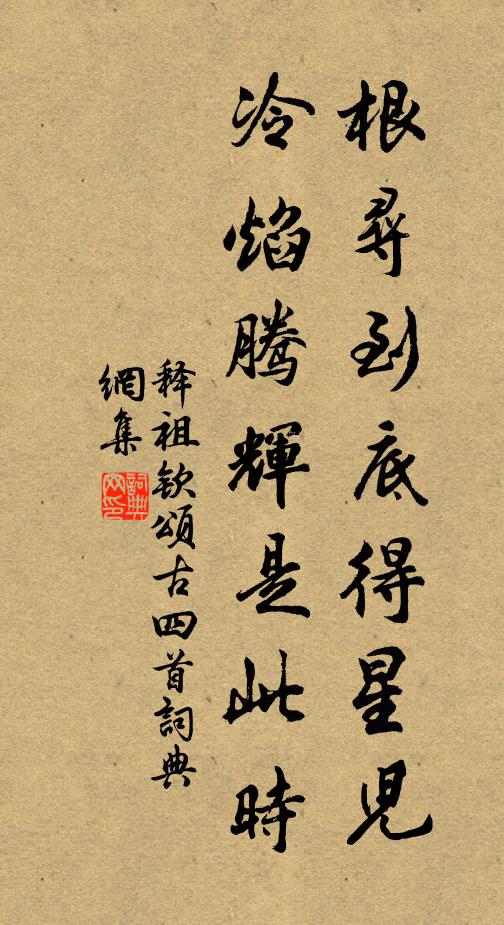 根尋到底得星児
冷焰騰輝是此時
释祖欽頌古四首詞典
網集
詞典
网印